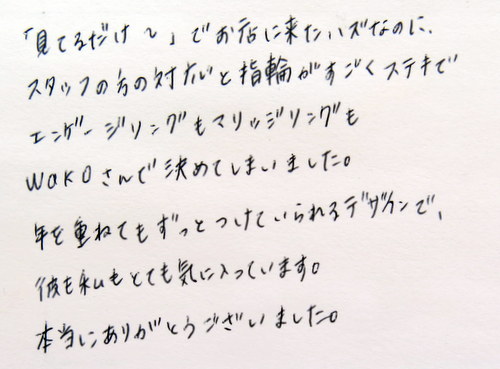 「見てるだけ〜」でお店に来たハズなのに、
スタッフの方の対応と指輪がすごくステキで
エンゲージリングもマリッジリングも
WAKOさんで決めてしまいました。
年を重ねてもずっとつけていられるデザインで、
彼も私もとても気に入っています。
本当にありがとうございました。